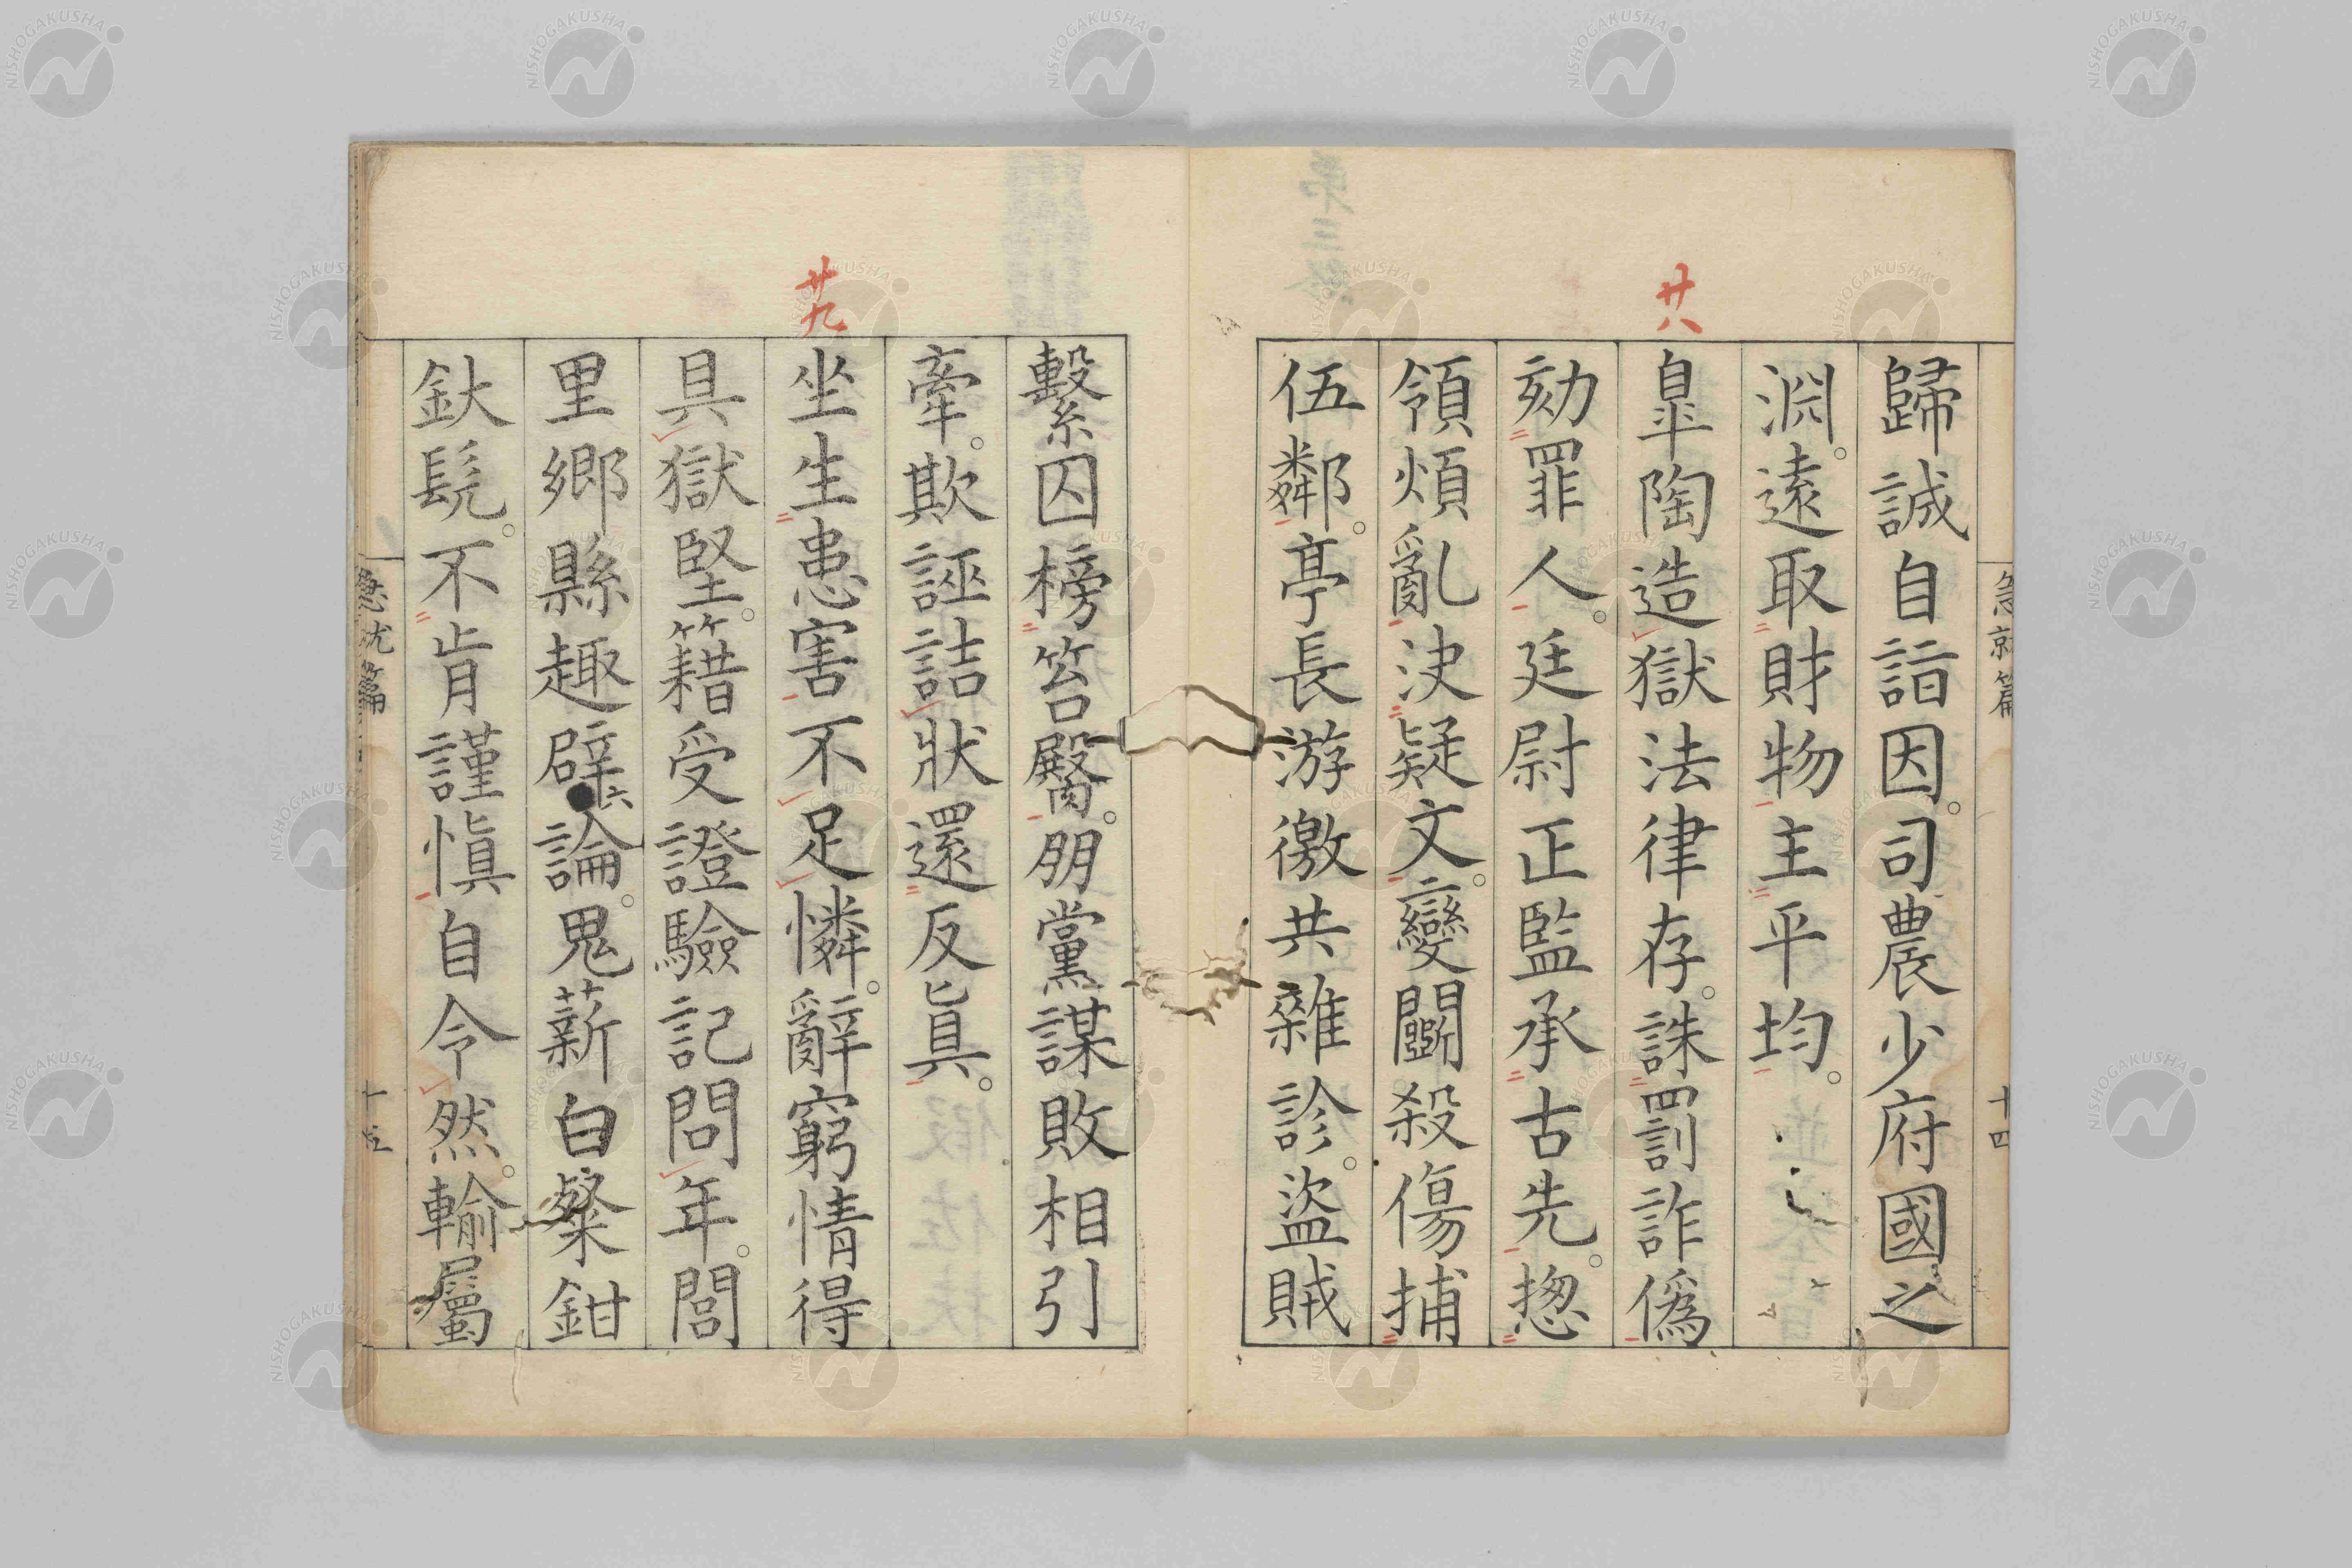 急就篇
十四
歸誠自詣因。司農少府國之
淵。遠取財物主平均。
廿八
皐陶造獄法律存。誅罰詐僞
劾罪人。廷尉正監承古先。揔
領煩亂決疑文。變鬬殺傷捕
伍鄰。亭長游徼共雜診。盜賊
繫囚榜笞臋。朋黨謀敗相引
牽。欺誣詰狀還反眞。
廿九
坐生患害不足憐。辭窮情得
具獄堅。籍受證驗記問年。閭
里鄉縣趣辟論。鬼薪白粲鉗
釱髡。不肯謹愼自令然。輸屬
急就篇
十五
NISHOGAKUSHA